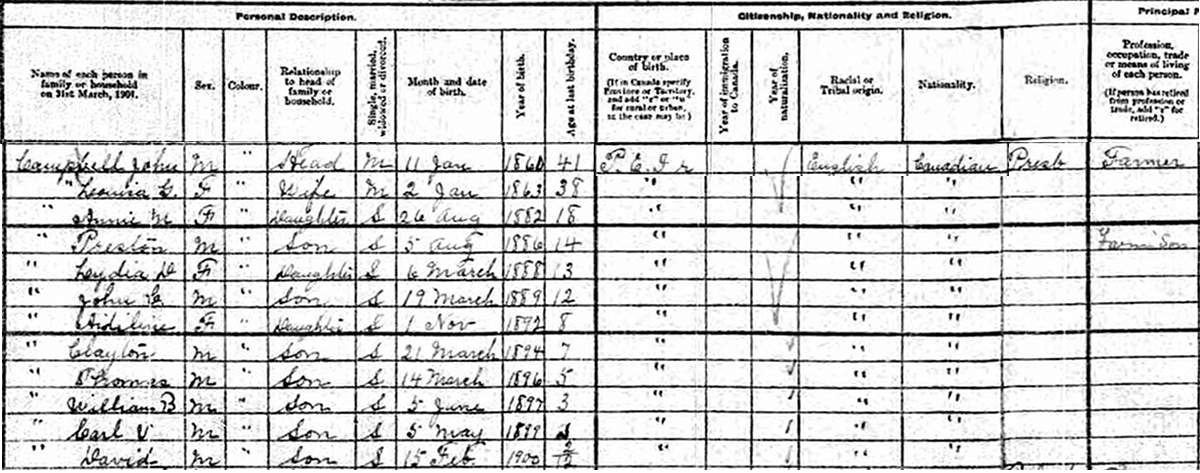 Personal Description. Citizenship, Nationality and Religion. Principal
Name of each person in family or household on 31st March, 1901. Sex. Colour. Relationship to head of family or household. Single, married, widowed or divorced. Month and date of birth. Year of birth. Age at last birthday. Country or place of birth. (If in Canada specify Province or Territory, and add "r" or "u" for rural or urban, as the case may be.) Year of immigration to Canada. Year of naturalization. Racial or Tribal origin. Nationality. Religion. Profession, occupation, trade or means of living of each person. (If person has retired from profession or trade, add "r" for retired.)
Campbell John M " Head M 11 Jan 1860 41 P.E.I r English Canadian Presb Farmer
" G. F " Wife M 2 Jan 1863 38 " " "
" Annie M F " Daughter S 26 Aug 1882 18 " " "
" Preston M " Son S 5 Aug 1886 14 " " " Son
" Lydia D F " Daughter S 6 March 1888 13 " " "
" John M " Son S 19 March 1889 12 " " "
" F " Daughter S 1 Nov 1892 8 " " "
" Clayton M " Son S 21 March 1894 7 " " "
" Thomas M " Son S 14 March 1896 5 " " "
" William B M " Son S 5 June 1897 3 " " "
" Carl V M " Son S 5 May 1899 " " "
" David M " Son S 15 Feb 1900 " " "